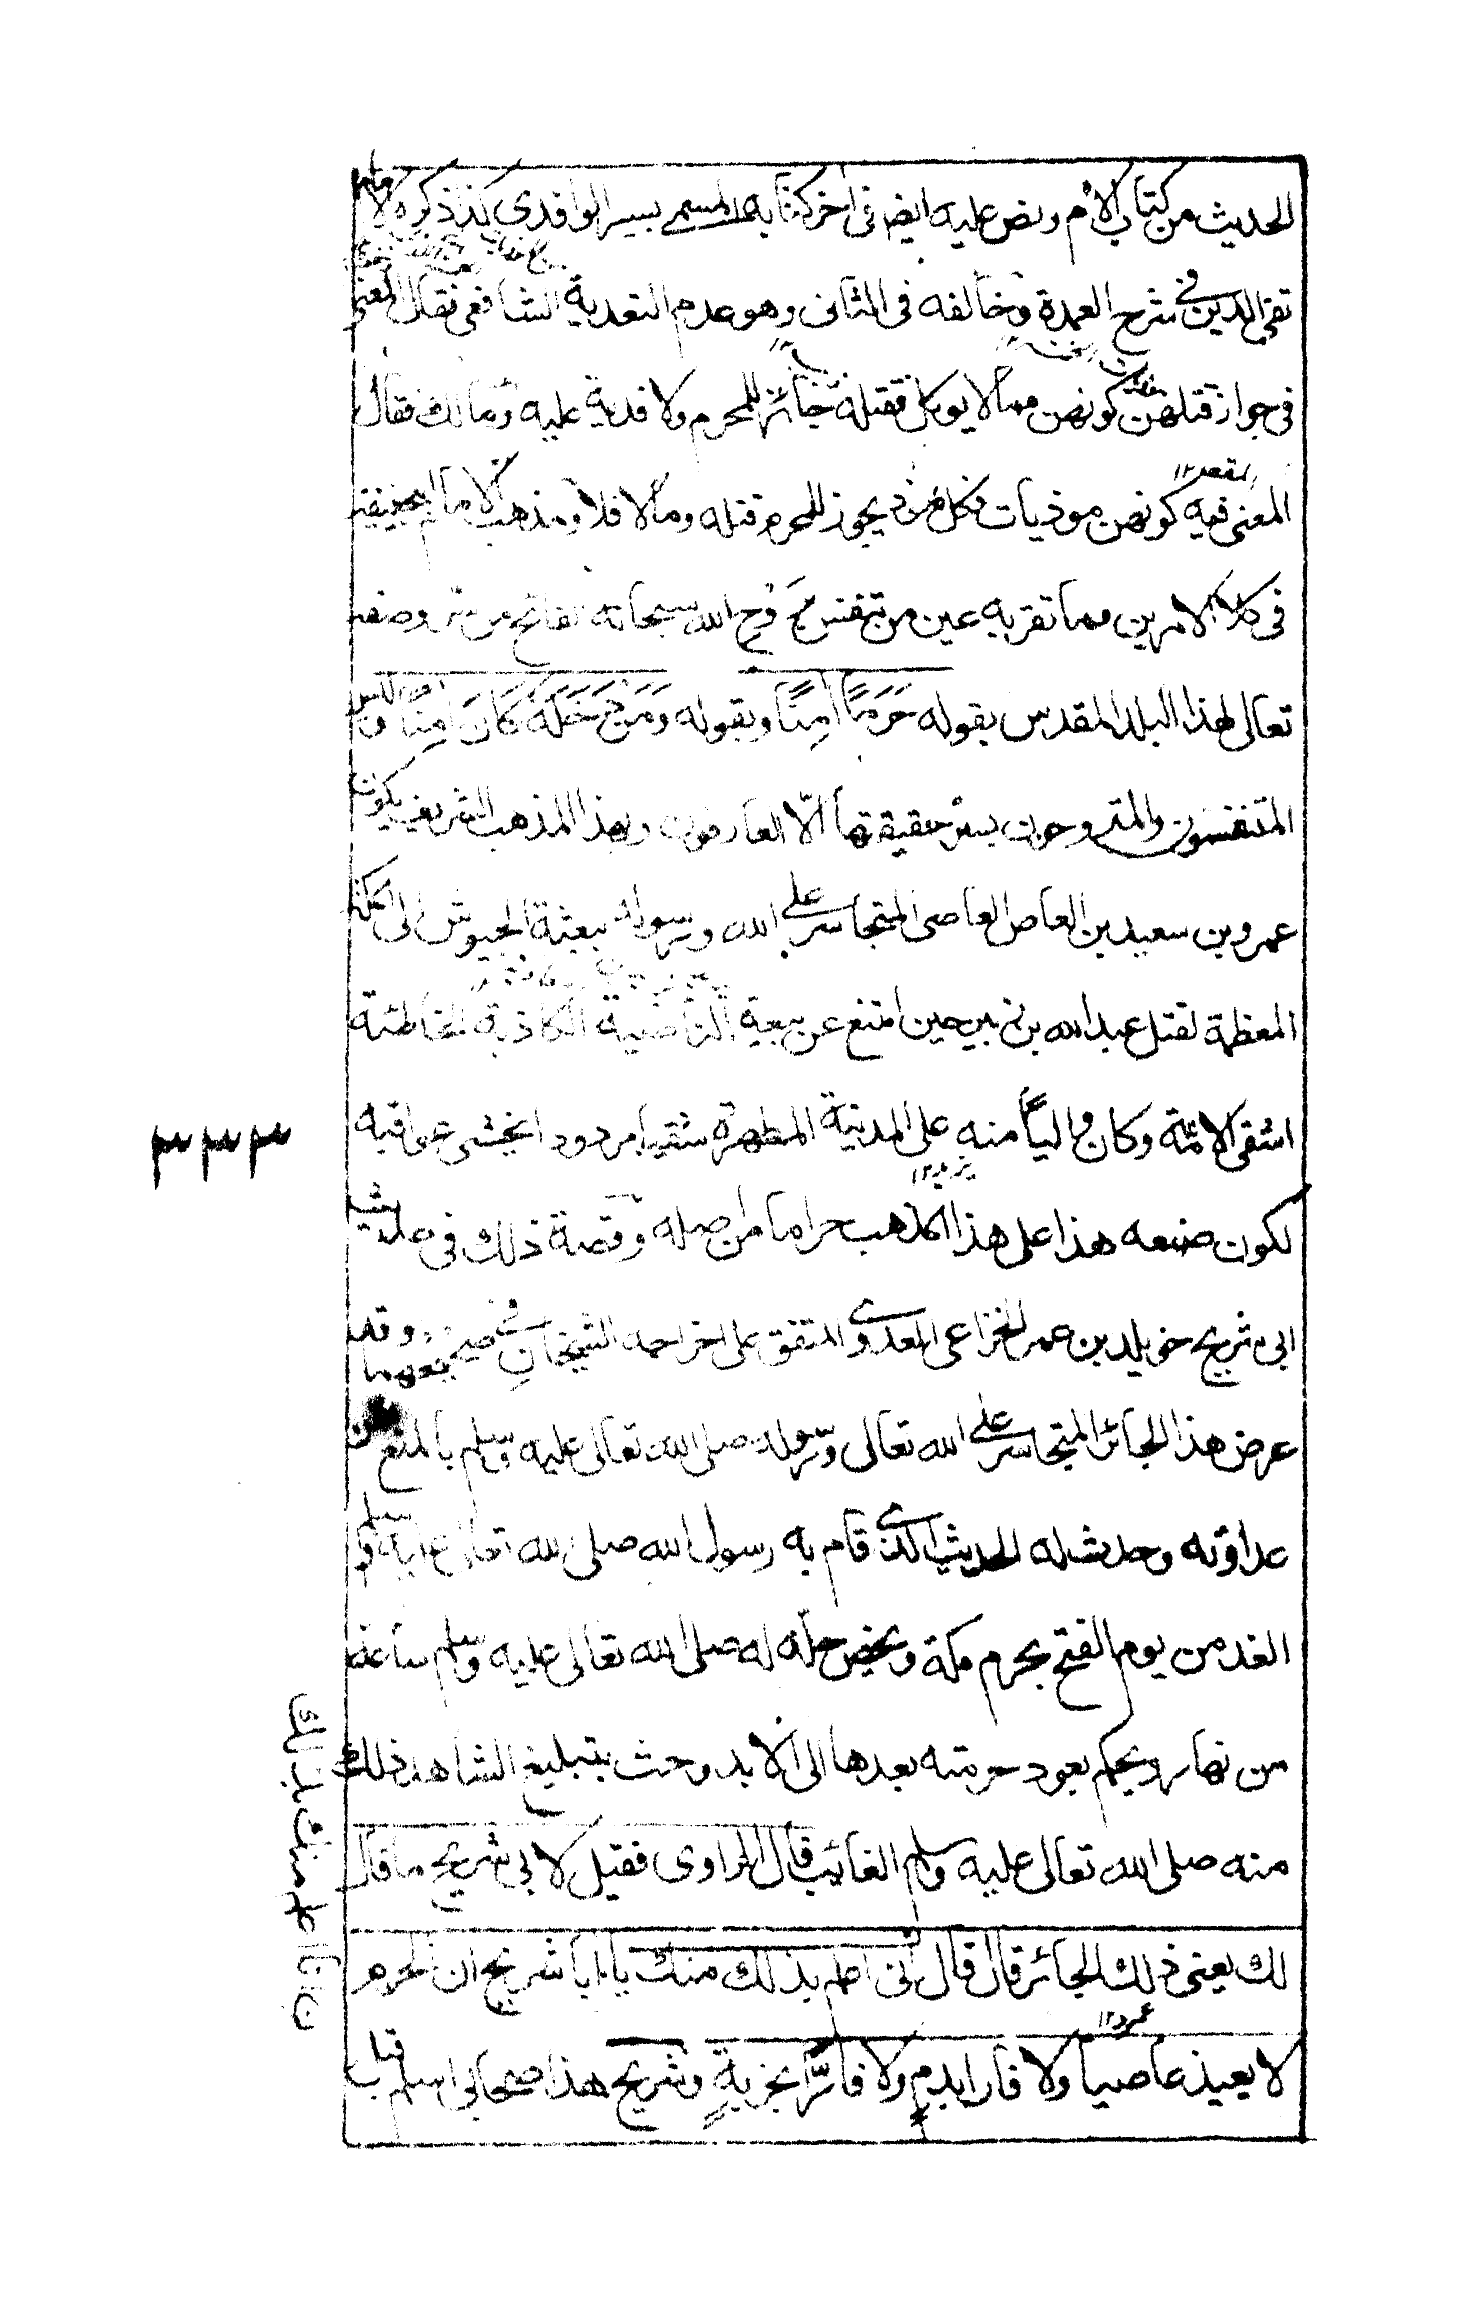 الحديث من كتاب الأم ونص عليه ايضه فى اٰخر كتابه المسمى بسير الواقدى كذ ذكره الامام
تقى الدين فى شرح العمدة وخالفه فى الثانى وهو عدم التعدية الشافعى فقال المعنى
فى جواز قتلهن كونهن مما لا يوكل فقتله جائز للمحرم ولا فدية عليه ومالك فقال
المعنى فيه كونهن موذيات فكل موذ يجوز للمحرم قتله وما لا فلا ومذهب الامام ابيحنيفة
فى كلا الامرين مما تقر به عين من تنفس روح الله سبحانه الفائح من سر وصفه
تعالى لهذا البلد المقدس بقوله حَرَمًا اٰمِنًا وبقوله وَمَنْ دَخَلَهُ كَانَ اٰمِنًا
المتنفسون والمتروحون بسر حقيقتها الّا العارفون وبهذا المذهب الشريف يكون
عمرو بن سعيد بن العاص العاصى المتجاسر على الله ورسوله ببعثة الجيوش الى مكة
المعظمة لقتل عبد الله بن زبير حين امتنع عن بيعة الكاذبة الخاطئة
اشقى الائمة وكان واليًا منه على المدينة المطهرة شقيا مردودا يخشى عواقبه
يزيد ١٢
لكون صنعه هذا على هذا المذهب حراما من اصله وقصة ذلك فى حديث
ابى شريح خويلد بن عمر الخزاعى العدوى المتفق على اخراجه الشيخان فى صحيحيهما وقد
عرض هذا الجائر المتجاسر على الله تعالى ورسوله صلى الله تعالى عليه وسلم بالمنع عن
عداوته وحدث له الحديث الذى قام به رسول الله صلى الله تعالى عليه وسلم
الغد من يوم الفتح بحرم مكة ويخص حله له صلى الله تعالى عليه وسلم ساعة
من نهار ويحكم بعود حرمته بعدها الى الابد وحث بتبليغ الشاهد ذلك
منه صلى الله تعالى عليه وسلم الغائب قال الراوى فقيل لابى شريح ما قال
لك يعنى ذلك الجائر قال قال انى اعلم بذلك منك يا ابا شريح ان الحرم
عمرو ١٢
لا يعيذ عاصيا ولا فارا بدمٍ ولا فارًّا بخربةٍ وشريح هذا صحابى اسلم قبل
٣٣٣